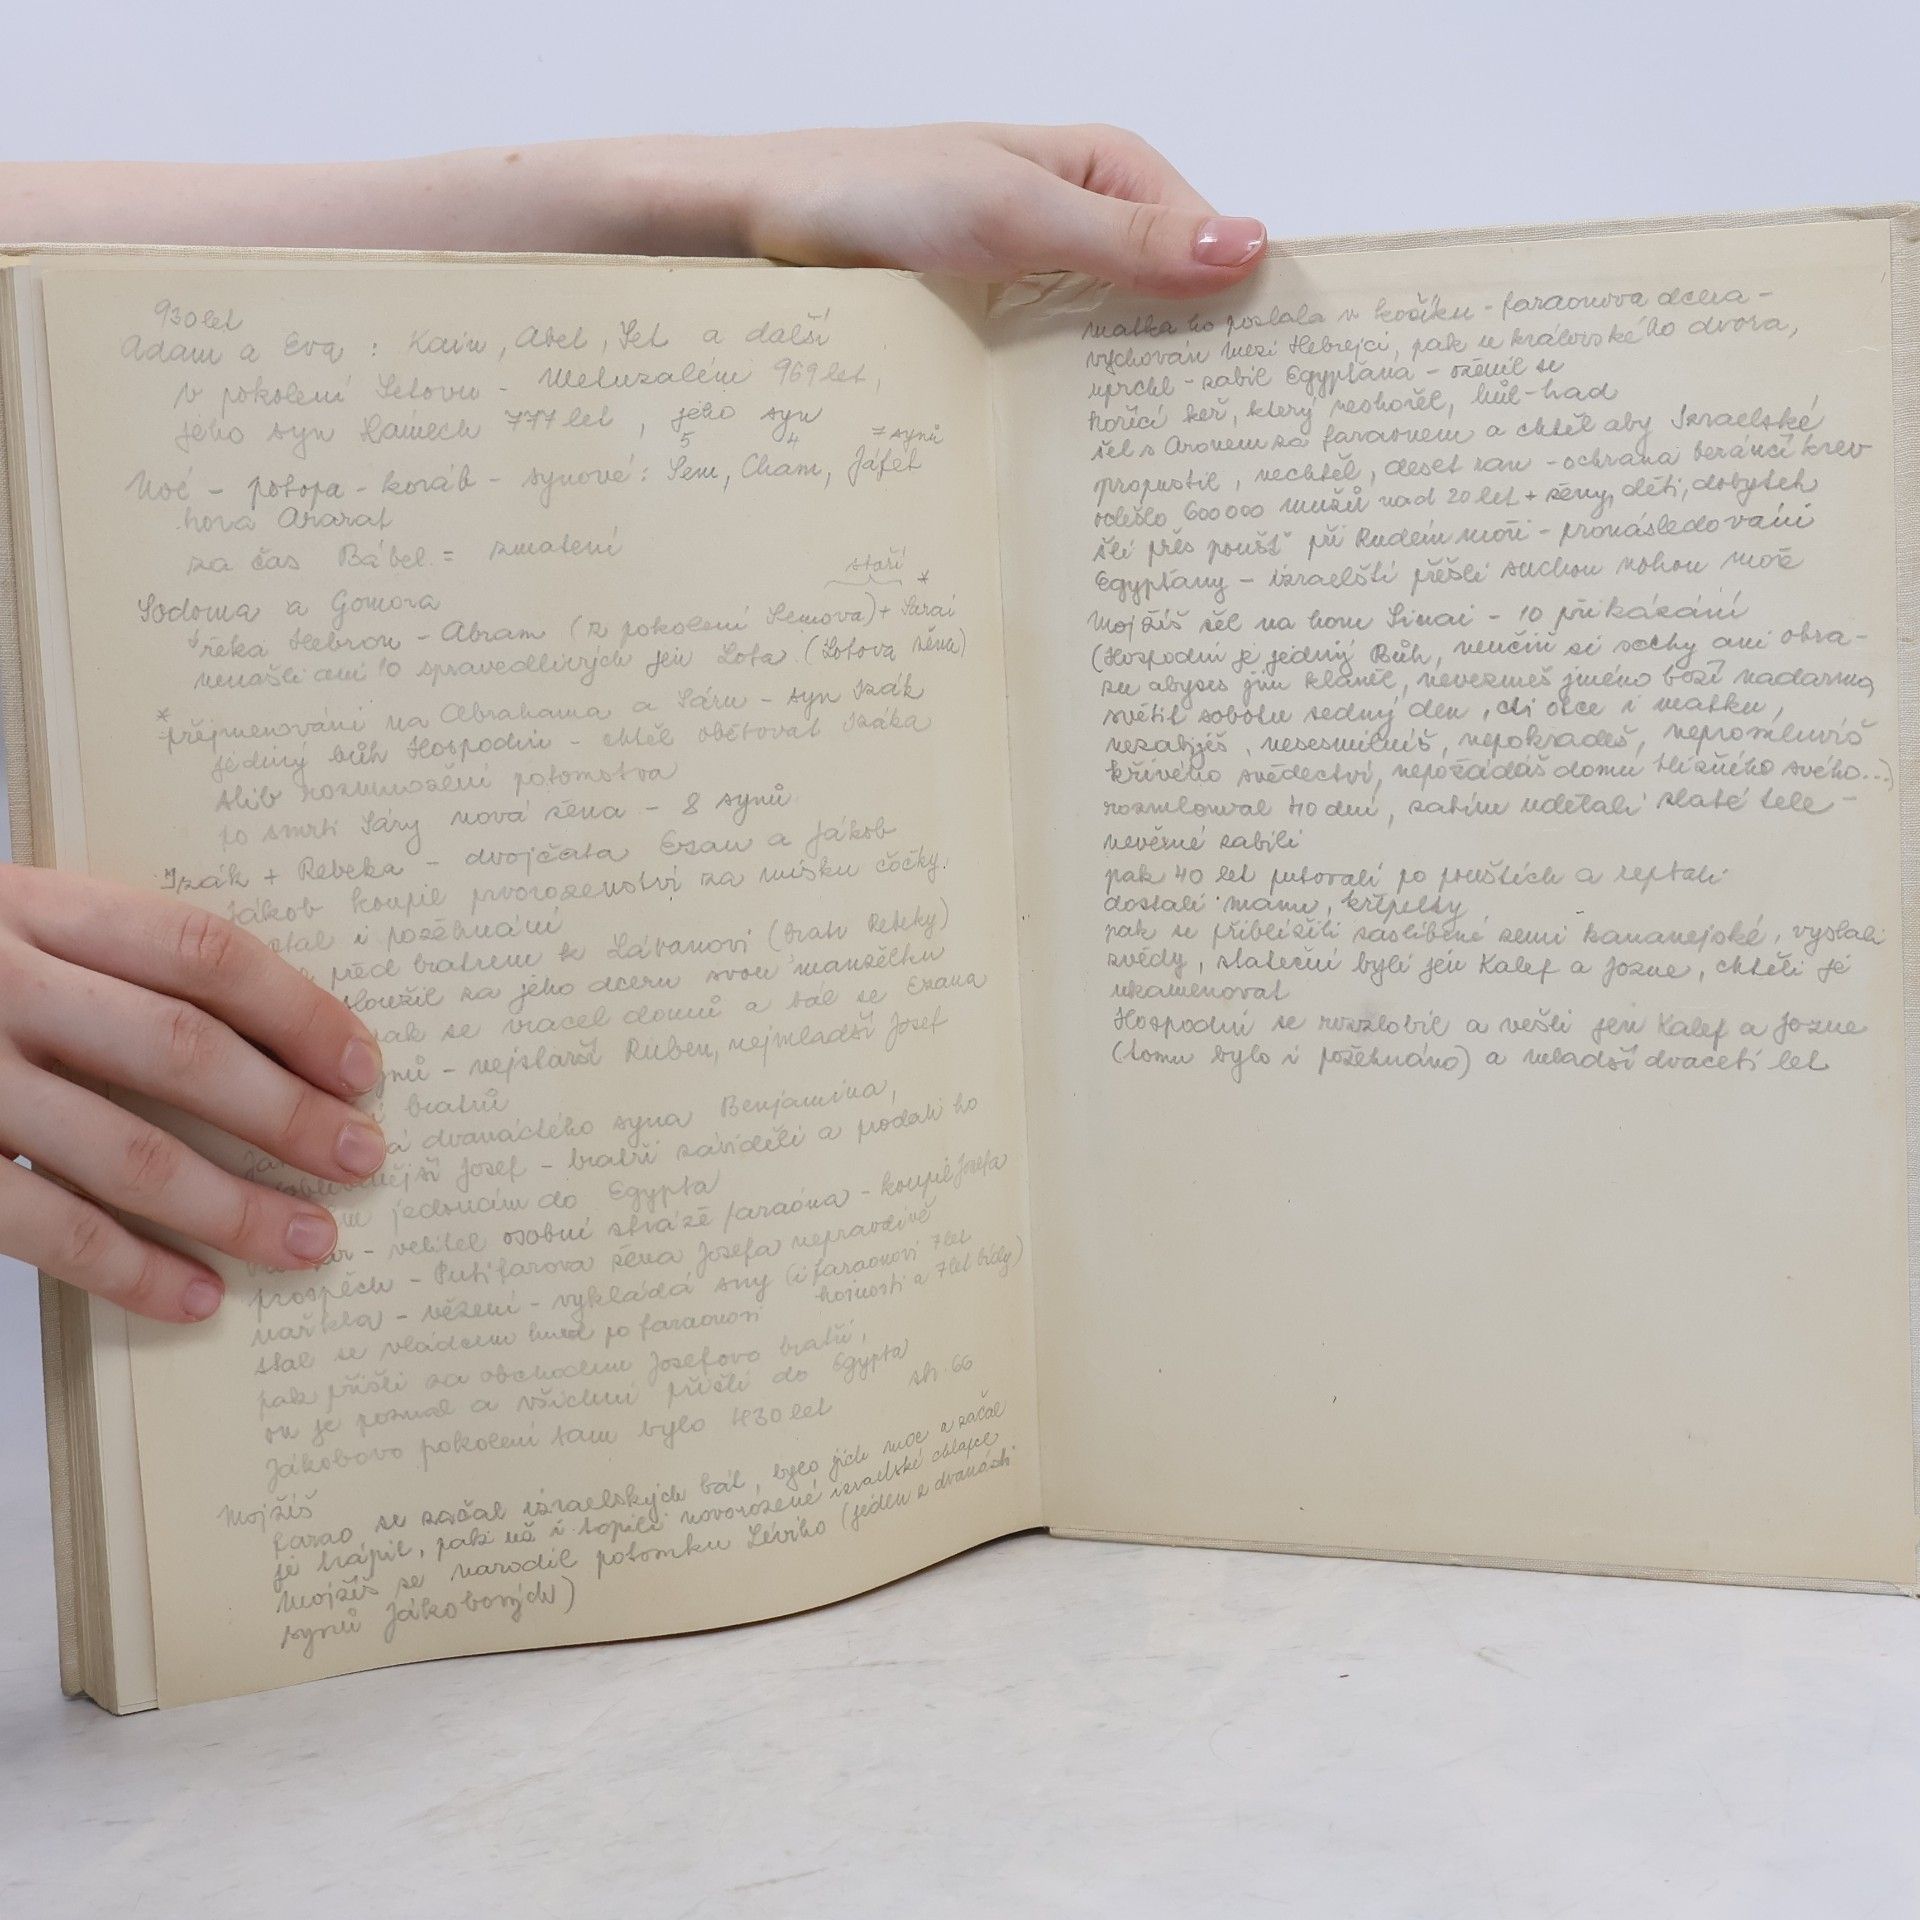 930 let
Adam a Eva : Kain, Abel, Set a další
v pokolení Setovu - Metuzalém 969 let,
jeho syn Lámech 777 let, jeho syn
5 4 = synů
Noé - potopa - koráb - synové: Sem, Cham, Jáfet
hora Ararat
za čas Bábel = zmatení
staří *
Sodoma a Gomora
řeka Hebron - Abram (z pokolení Semova) + Sarai
nenašli ani 10 spravedlivých jen Lota (Lotova žena)
* přejmenování na Abrahama a Sáru - syn Izák
jediný bůh Hospodin - chtěl obětovat Izáka
slib rozmnožení potomstva
po smrti Sáry nová žena - 8 synů
Izák + Rebeka - dvojčata Ezau a Jákob
Jákob koupil prvorozenství za misku čočky.
i požehnání
před bratrem k Lábanovi (bratr Rebeky)
sloužil za jeho dceru svou manželku
pak se vracel domů a bál se Ezaua
- nejstarší Ruben, nejmladší Josef
bratrů
dvanáctého syna Benjamína,
Josef - bratři záviděli a prodali ho
jedoucím do Egypta
- velitel osobní stráže faraóna - koupil Josefa
prospěch - Putifarova žena Josefa nepravdivě
nařkla - vězení - vykládá sny (i faraonovi 7 let
hojnosti a 7 let bídy)
stal se vládcem hned po faraonovi
pak přišli za obchodem Josefovo bratři,
on je poznal a všichni přišli do Egypta
Jákobovo pokolení tam bylo 430 let str. 66
Mojžíš
farao se začal izraelských bát, bylo jich moc a začal
je trápit, pak už i topili novorozené izraelské chlapce
Mojžíš se narodil potomku Léviho (jeden z dvanácti
synů Jákobových)
matka ho poslala v košíku - faraonova dcera -
vychován mezi Hebrejci, pak u královského dvora,
uprchl - zabil Egypťana - oženil se
hořící keř, který neshořel, hůl-had
šel s Aronem za faraonem a chtěl aby Izraelské
propustil, nechtěl, deset ran - ochrana beránčí krev
odešlo 600 000 mužů nad 20 let + ženy, děti, dobytek
šli přes poušť při Rudém moři - pronásledováni
Egypťany - izraelští přešli suchou nohou moře
Mojžíš šel na horu Sinai - 10 přikázání
(Hospodin je jediný Bůh, neučiň si sochy ani obra-
zu abyses jim klaněl, nevezmeš jméno boží nadarmo
světil sobotu sedmý den, cti otce i matku,
nezabiješ, nesesmilníš, nepokradeš, nepromluvíš
křivého svědectví, nepožádáš domu bližního svého...)
rozmlouval 40 dní, zatím udělali zlaté tele -
nevěrné zabili
pak 40 let putovali po pouštích a reptali
dostali manu, křepelky
pak se přiblížili zaslíbené zemi kananejské, vyslali
zvědy, stateční byli jen Kalef a Jozue, chtěli je
ukamenovat
Hospodin se rozzlobil a vešli jen Kalef a Jozue
(tomu bylo i požehnáno) a mladší dvaceti let